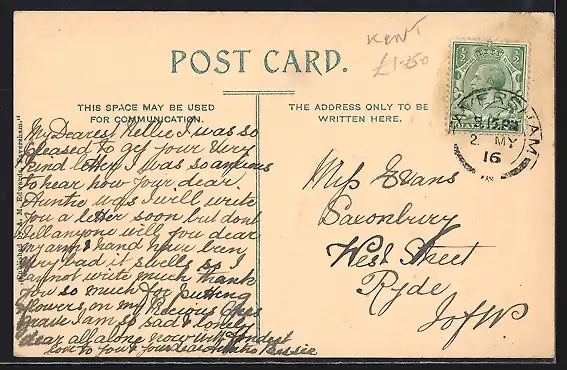 POST CARD.
KENT
£1.50
THIS SPACE MAY BE USED
FOR COMMUNICATION.
THE ADDRESS ONLY TO BE
WRITTEN HERE.
FAVERSHAM
8.15 PM
2 MY
16
My Dearest Nellie I was so
pleased to get your very
kind letter I was so anxious
to hear how your dear
Auntie was I will write
you a letter soon but dont
tell anyone will you dear
my arm & hand have been
very bad it swells so I
cannot write much thank
you so much for putting
flowers on my Precious
grave I am so sad & lonely
dear all alone now with fondest
love to you & your dear Auntie Bessie
Miss Evans
Saxonbury
West Street
Ryde
I of W